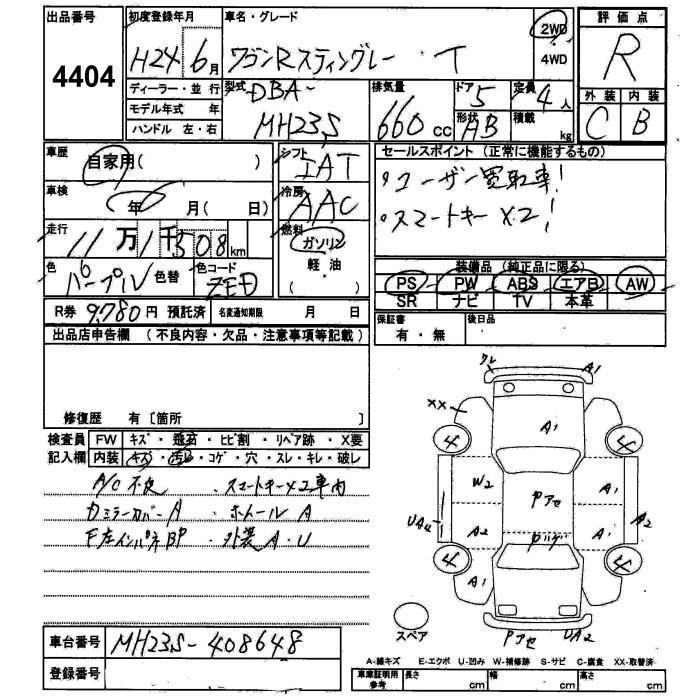 出品番号 4404
初度登録年月 H24 6月
車名・グレード ワゴンRスティングレー ・ T
2WD ・ 4WD
評価点 R
外装 C 内装 B
ディーラー・並行
モデル年式 年
ハンドル 左・右
型式 DBA-
MH23S
排気量 660 cc
ドア形状 5
AB
定員 4人
積載 kg
車歴 自家用( )
車検 年 6 月( 日)
走行 11万1千508km
色 パープル 色替
色コード ZED
シフト IAT
冷房 AAC
燃料 ガソリン
軽・油
( )
セールスポイント (正常に機能するもの)
・ユーザー買取車!
・スマートキー×2!
装備品 (純正品に限る)
PS PW ABS エアB AW
SR ナビ TV 本革
R券 9,780円 預託済 名変通知期限 月 日
保証書 有・無
後日品
出品店申告欄 (不良内容・欠品・注意事項等記載)
修復歴 有 [箇所 ]
検査員記入欄
FW キズ・飛石・ヒビ割・リペア跡・X要
内装 キズ・汚れ・コゲ・穴・スレ・キレ・破レ
A/C不良 ・スマートキー×2車内
Dミラーカバー A ・ホイール A
F左インパネBP ・外装 A・U
ワレ A1
XX
4 A1 4
W2 Pアセ A1
UA4 A2 A1 A2
4 A1 4
スペア
Pアセ UA2
車台番号 MH23S-408648
登録番号
A-線キズ E-エクボ U-凹み W-補修跡 S-サビ C-腐食 XX-交換済
車庫証明用参考 長さ cm 幅 cm 高さ cm